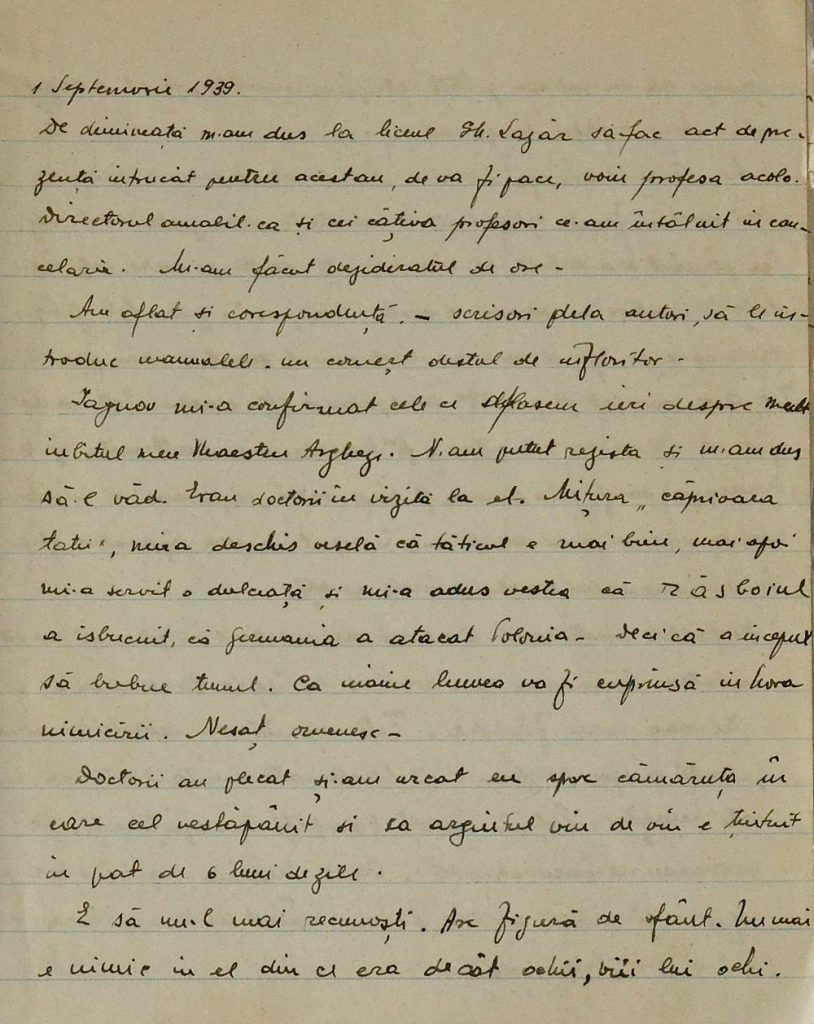 1 Septemvrie 1939.
De dimineață m-am dus la liceul Gh. Lazăr să-fac act de pre-
zență întrucât pentru acest an, de va fi pace, voiu profesa acolo.
Directorul amabil ca și cei câțiva profesori ce-am întâlnit in can-
celarie. Mi-am făcut dezideratul de ore -
Am aflat și corespondență. - scrisori dela autori, să le in-
troduc manualele. un comerț destul de infloritor -
Iagnov mi-a confirmat cele ce aflasem ieri despre mult
iubitul meu Maestru Arghezi. N-am putut rezista și m-am dus
să-l văd. Erau doctorii în vizită la el. Mițura „căprioara
tatii", mi-a deschis veselă că tăticul e mai bine, mai apoi
mi-a servit o dulceață și mi-a adus vestea că răsboiul
a isbucnit, că Germania a atacat Polonia - Deci că a inceput
să bubue tunul. Ca maine lumea va fi cuprinsă in hora
nimicirii. Nesaț omenesc -
Doctorii au plecat și-am urcat eu spre cămăruța în
care cel nestăpânit și ca argintul viu de viu e țintuit
in pat de 6 luni de zile.
E să nu-l mai recunoști. Are figură de sfânt. Nu mai
e nimic in el din ce era decât ochii, viii lui ochi.